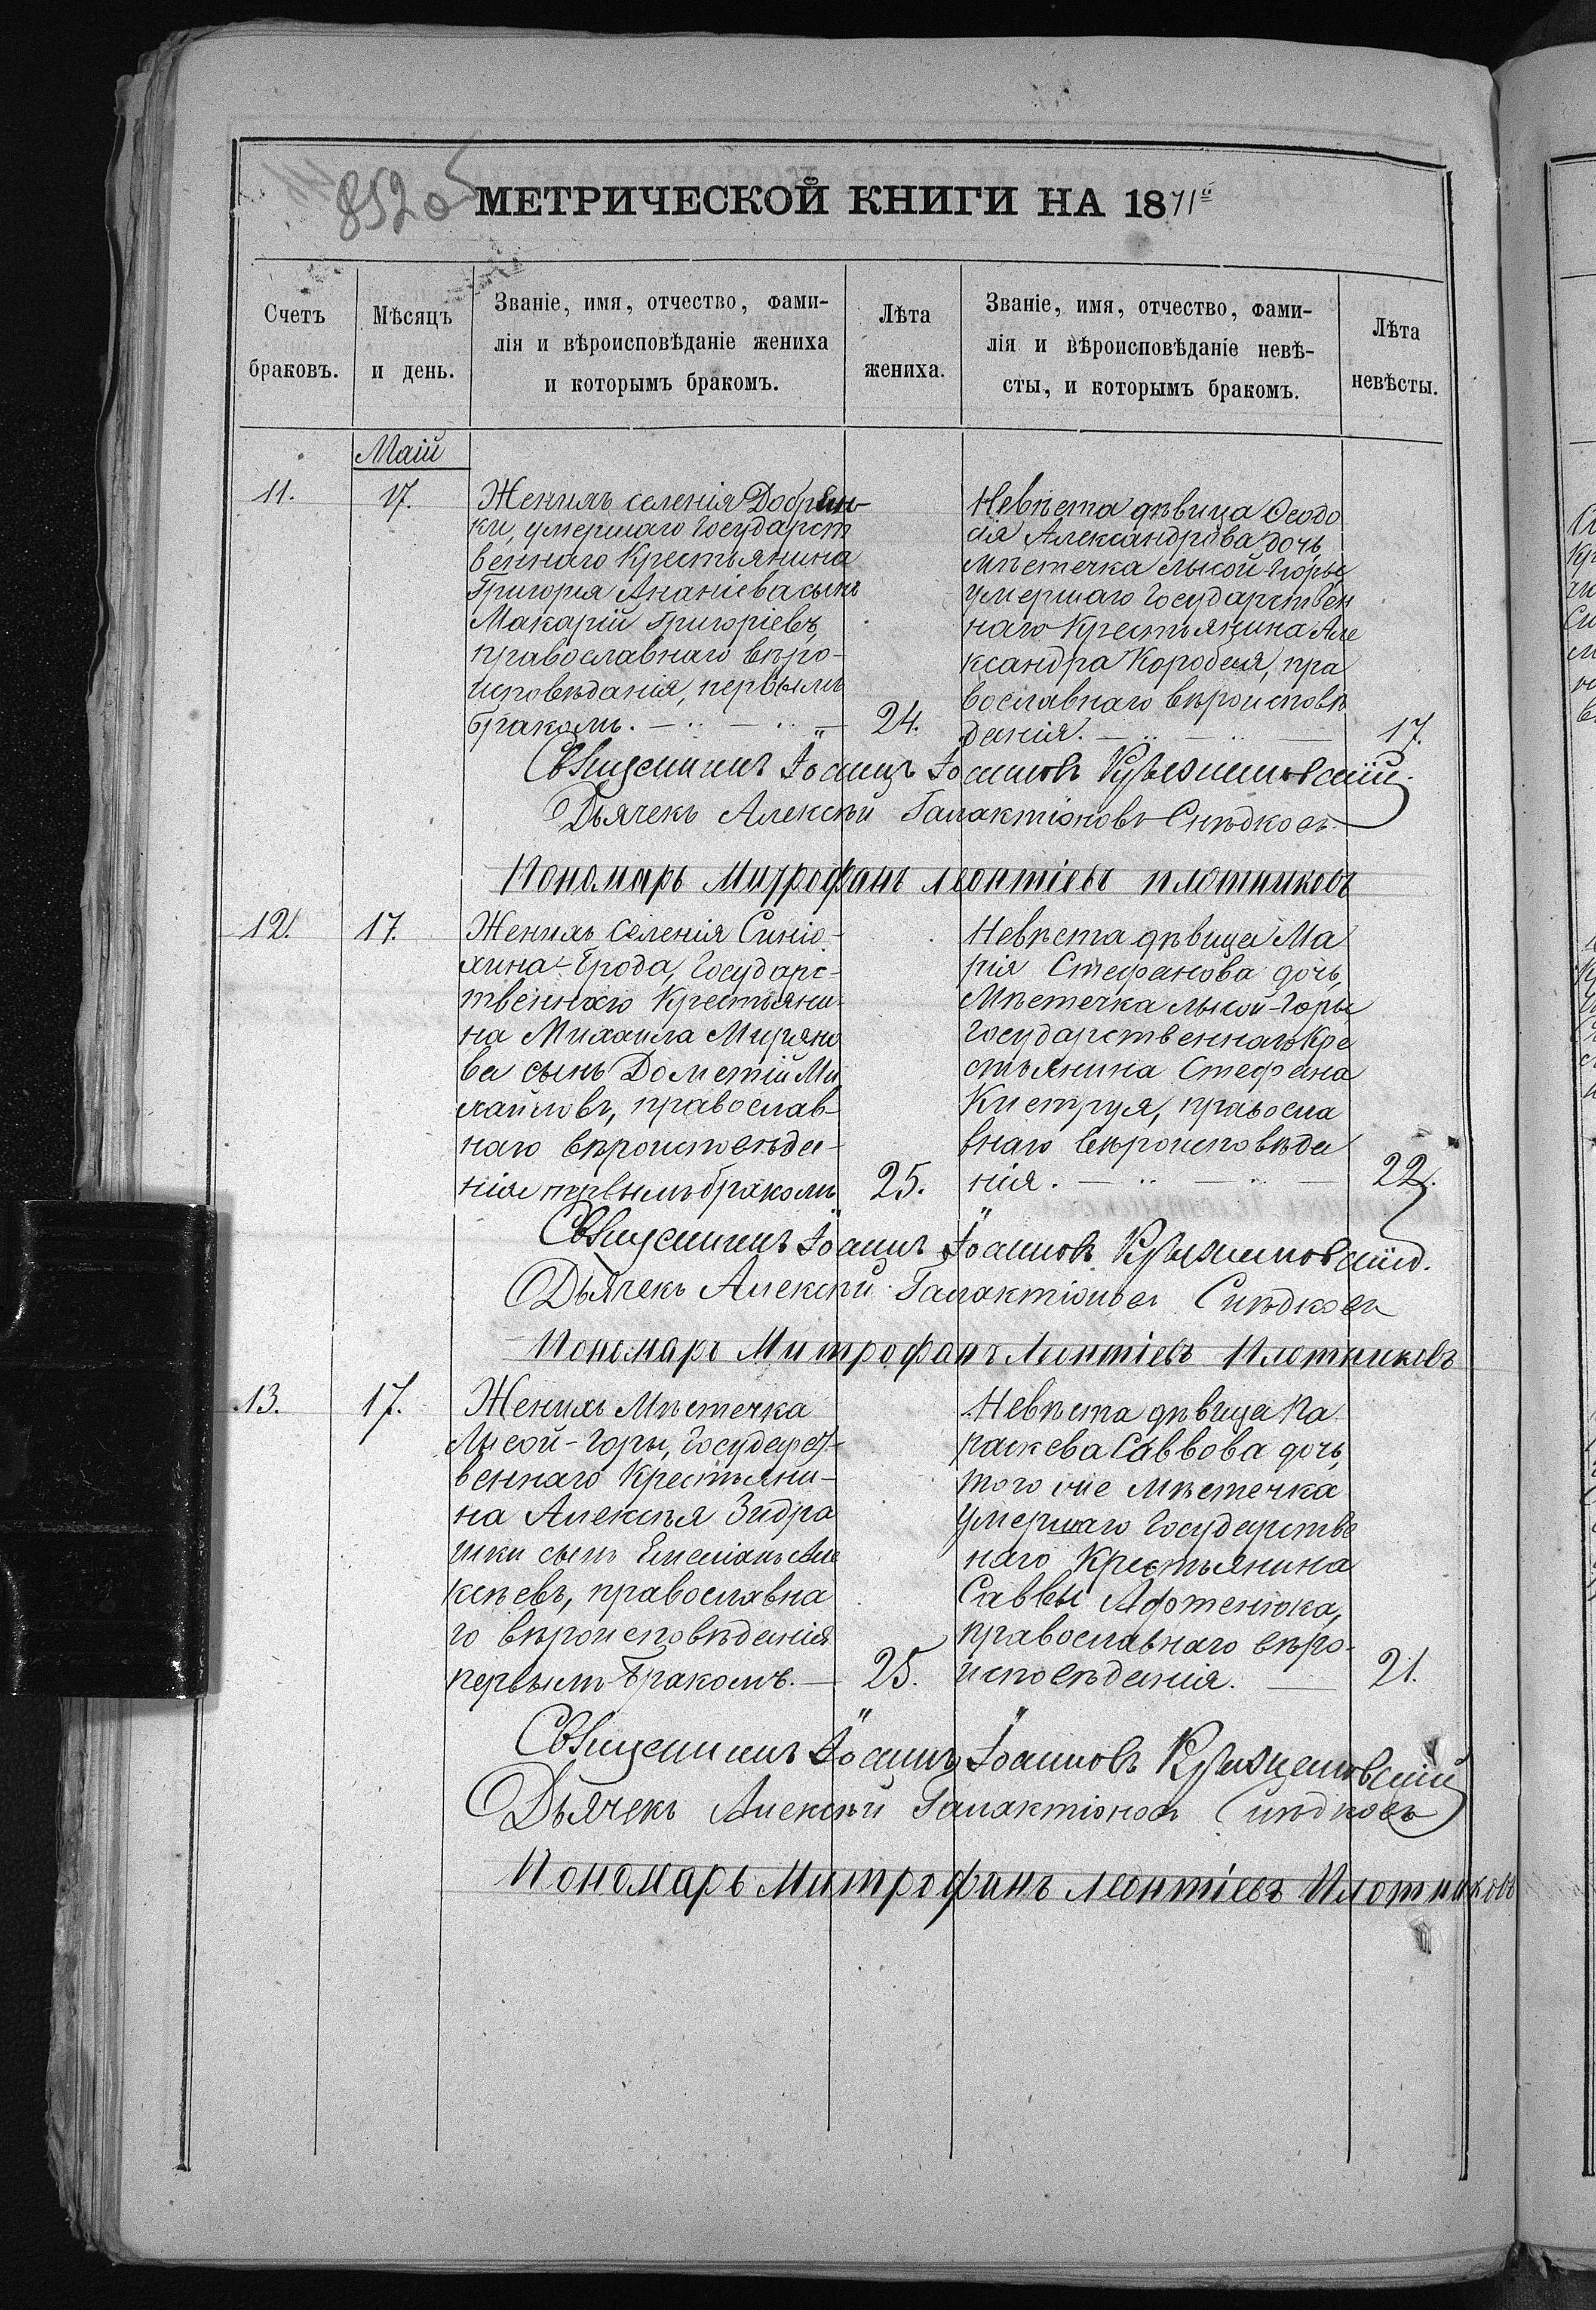 85205
МЕТРИЧЕСКОЙ КНИГИ НА 1871й
Счетъ браковъ.
Мѣсяцъ и день.
Званіе, имя, отчество, фами-
лія и вѣроисповѣданіе жениха
и которымъ бракомъ.
Лѣта жениха.
Званіе, имя, отчество, фами-
лія и вѣроисповѣданіе невѣ-
сты, и которымъ бракомъ.
Лѣта невѣсты.
Маій
11.
17.
Женихъ селенія Добрен-
ки, умершаго Государст
веннаго Крестьянина
Григорія Ананіева сынъ
Макарій Григоріевъ,
православнаго вѣро-
исповѣданія, первымъ
бракомъ.
24.
Невѣста дѣвица Ѳеодо
сія Александрова дочь,
мѣстечка Лысой-Горы
умершаго Государствен
наго Крестьянина Але
ксандра Коробея, пра
вославнаго вѣроисповѣ
данія.
17.
Священникъ Іоаннъ Іоанновъ
Дьячекъ Алексѣй Галактіоновъ Снѣдковъ
Пономарь Митрофанъ Леонтіевъ Плотниковъ
12.
17.
Женихъ селенія Синю-
хина-Брода, Государс-
твеннаго Крестьяни-
на Михаила Миряно
ва сынъ Дометій Ми
хайловъ, православ-
наго вѣроисповѣда-
нія первымъ бракомъ
25.
Невѣста дѣвица Ма
рія Стефанова дочь,
Мѣстечка Лысой-Горы,
Государственнаго Кре
стьянина Стефана
Киструя, правосла
внаго вѣроисповѣда
нія.
22.
Священникъ Іоаннъ Іоанновъ
Дьячекъ Алексѣй Галактіоновъ Снѣдковъ
Пономарь Митрофанъ Леонтіевъ Плотниковъ
13.
17.
Женихъ Мѣстечка
Лысой-Горы, Государст-
веннаго Крестьяни-
на Алексѣя Зидра
шки сынъ Емеліанъ Але
ксѣевъ, православна
го вѣроисповѣданія
первымъ бракомъ.
25.
Невѣста дѣвица Па
раскева Саввова дочь,
того же мѣстечка
умершаго Государстве
наго Крестьянина
Саввы Афотенюка,
православнаго вѣро-
исповѣданія.
21.
Священникъ Іоаннъ Іоанновъ
Дьячекъ Алексѣй Галактіоновъ Снѣдковъ
Пономарь Митрофанъ Леонтіевъ Плотниковъ